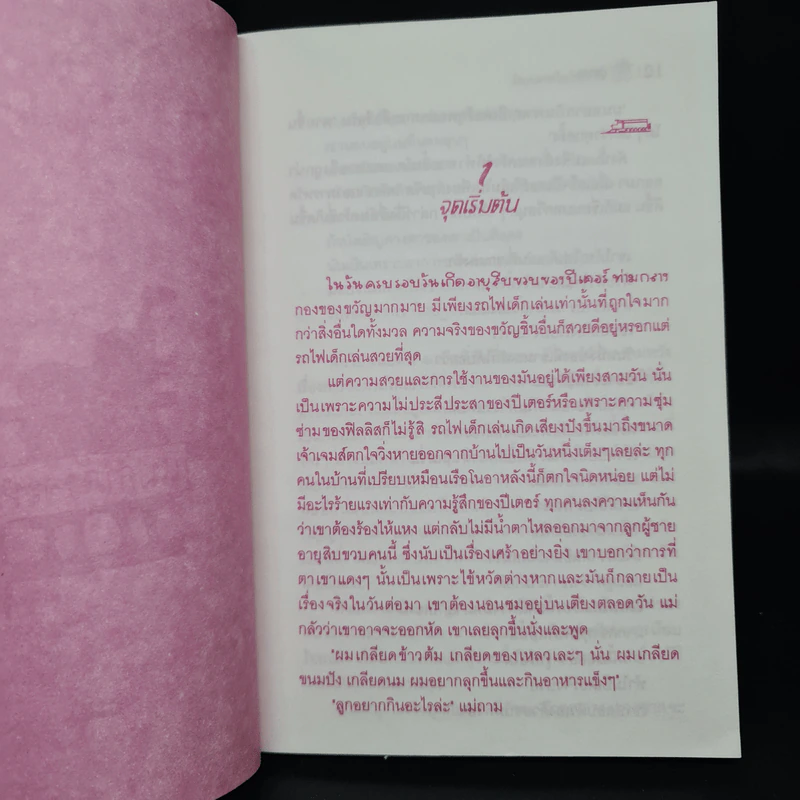 1
จุดเริ่มต้น
ในวันครบรอบวันเกิดอายุสิบขวบของปีเตอร์ ท่ามกลาง
กองของขวัญมากมาย มีเพียงรถไฟเด็กเล่นเท่านั้นที่ถูกใจมาก
กว่าสิ่งอื่นใดทั้งมวล ความจริงของขวัญชิ้นอื่นก็สวยดีอยู่หรอกแต่
รถไฟเด็กเล่นสวยที่สุด
แต่ความสวยและการใช้งานของมันอยู่ได้เพียงสามวัน นั่น
เป็นเพราะความไม่ประสีประสาของปีเตอร์หรือเพราะความซุ่ม
ซ่ามของฟิลลิสก็ไม่รู้สิ รถไฟเด็กเล่นเกิดเสียงปังขึ้นมาถึงขนาด
เจ้าเจมส์ตกใจวิ่งหายออกจากบ้านไปเป็นวันหนึ่งเต็มๆเลยล่ะ ทุก
คนในบ้านที่เปรียบเหมือนเรือโนอาหลังนี้ก็ตกใจนิดหน่อย แต่ไม่
มีอะไรร้ายแรงเท่ากับความรู้สึกของปีเตอร์ ทุกคนลงความเห็นกัน
ว่าเขาต้องร้องไห้แหง แต่กลับไม่มีน้ำตาไหลออกมาจากลูกผู้ชาย
อายุสิบขวบคนนี้ ซึ่งนับเป็นเรื่องเศร้าอย่างยิ่ง เขาบอกว่าการที่
ตาเขาแดงๆ นั้นเป็นเพราะไข้หวัดต่างหากและมันก็กลายเป็น
เรื่องจริงในวันต่อมา เขาต้องนอนซมอยู่บนเตียงตลอดวัน แม่
กลัวว่าเขาอาจจะออกหัด เขาเลยลุกขึ้นนั่งและพูด
"ผมเกลียดข้าวต้ม เกลียดของเหลวเละๆ นั่น ผมเกลียด
ขนมปัง เกลียดนม ผมอยากลุกขึ้นและกินอาหารแข็งๆ"
"ลูกอยากกินอะไรล่ะ" แม่ถาม